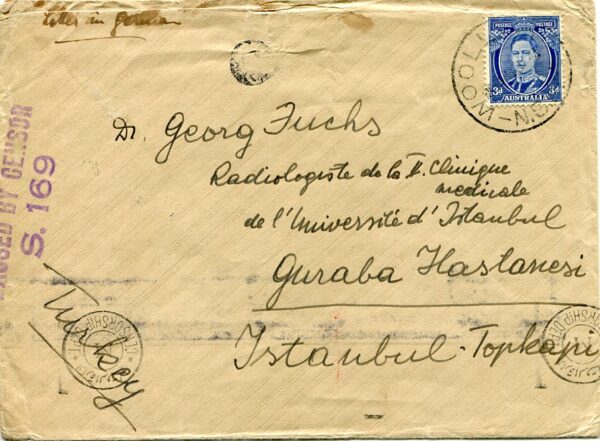 Letter in German
POSTAGE POSTAGE
3d 3d
AUSTRALIA
WOOL
N.S.
PASSED BY CENSOR
S. 169
Dr. Georg Fuchs
Radiologiste de la II. Clinique
medicale
de l'Université d'Istanbul
Guraba Hastanesi
Istanbul-Topkapi
Turkey
CENSORSHIP
CENSORSHIP